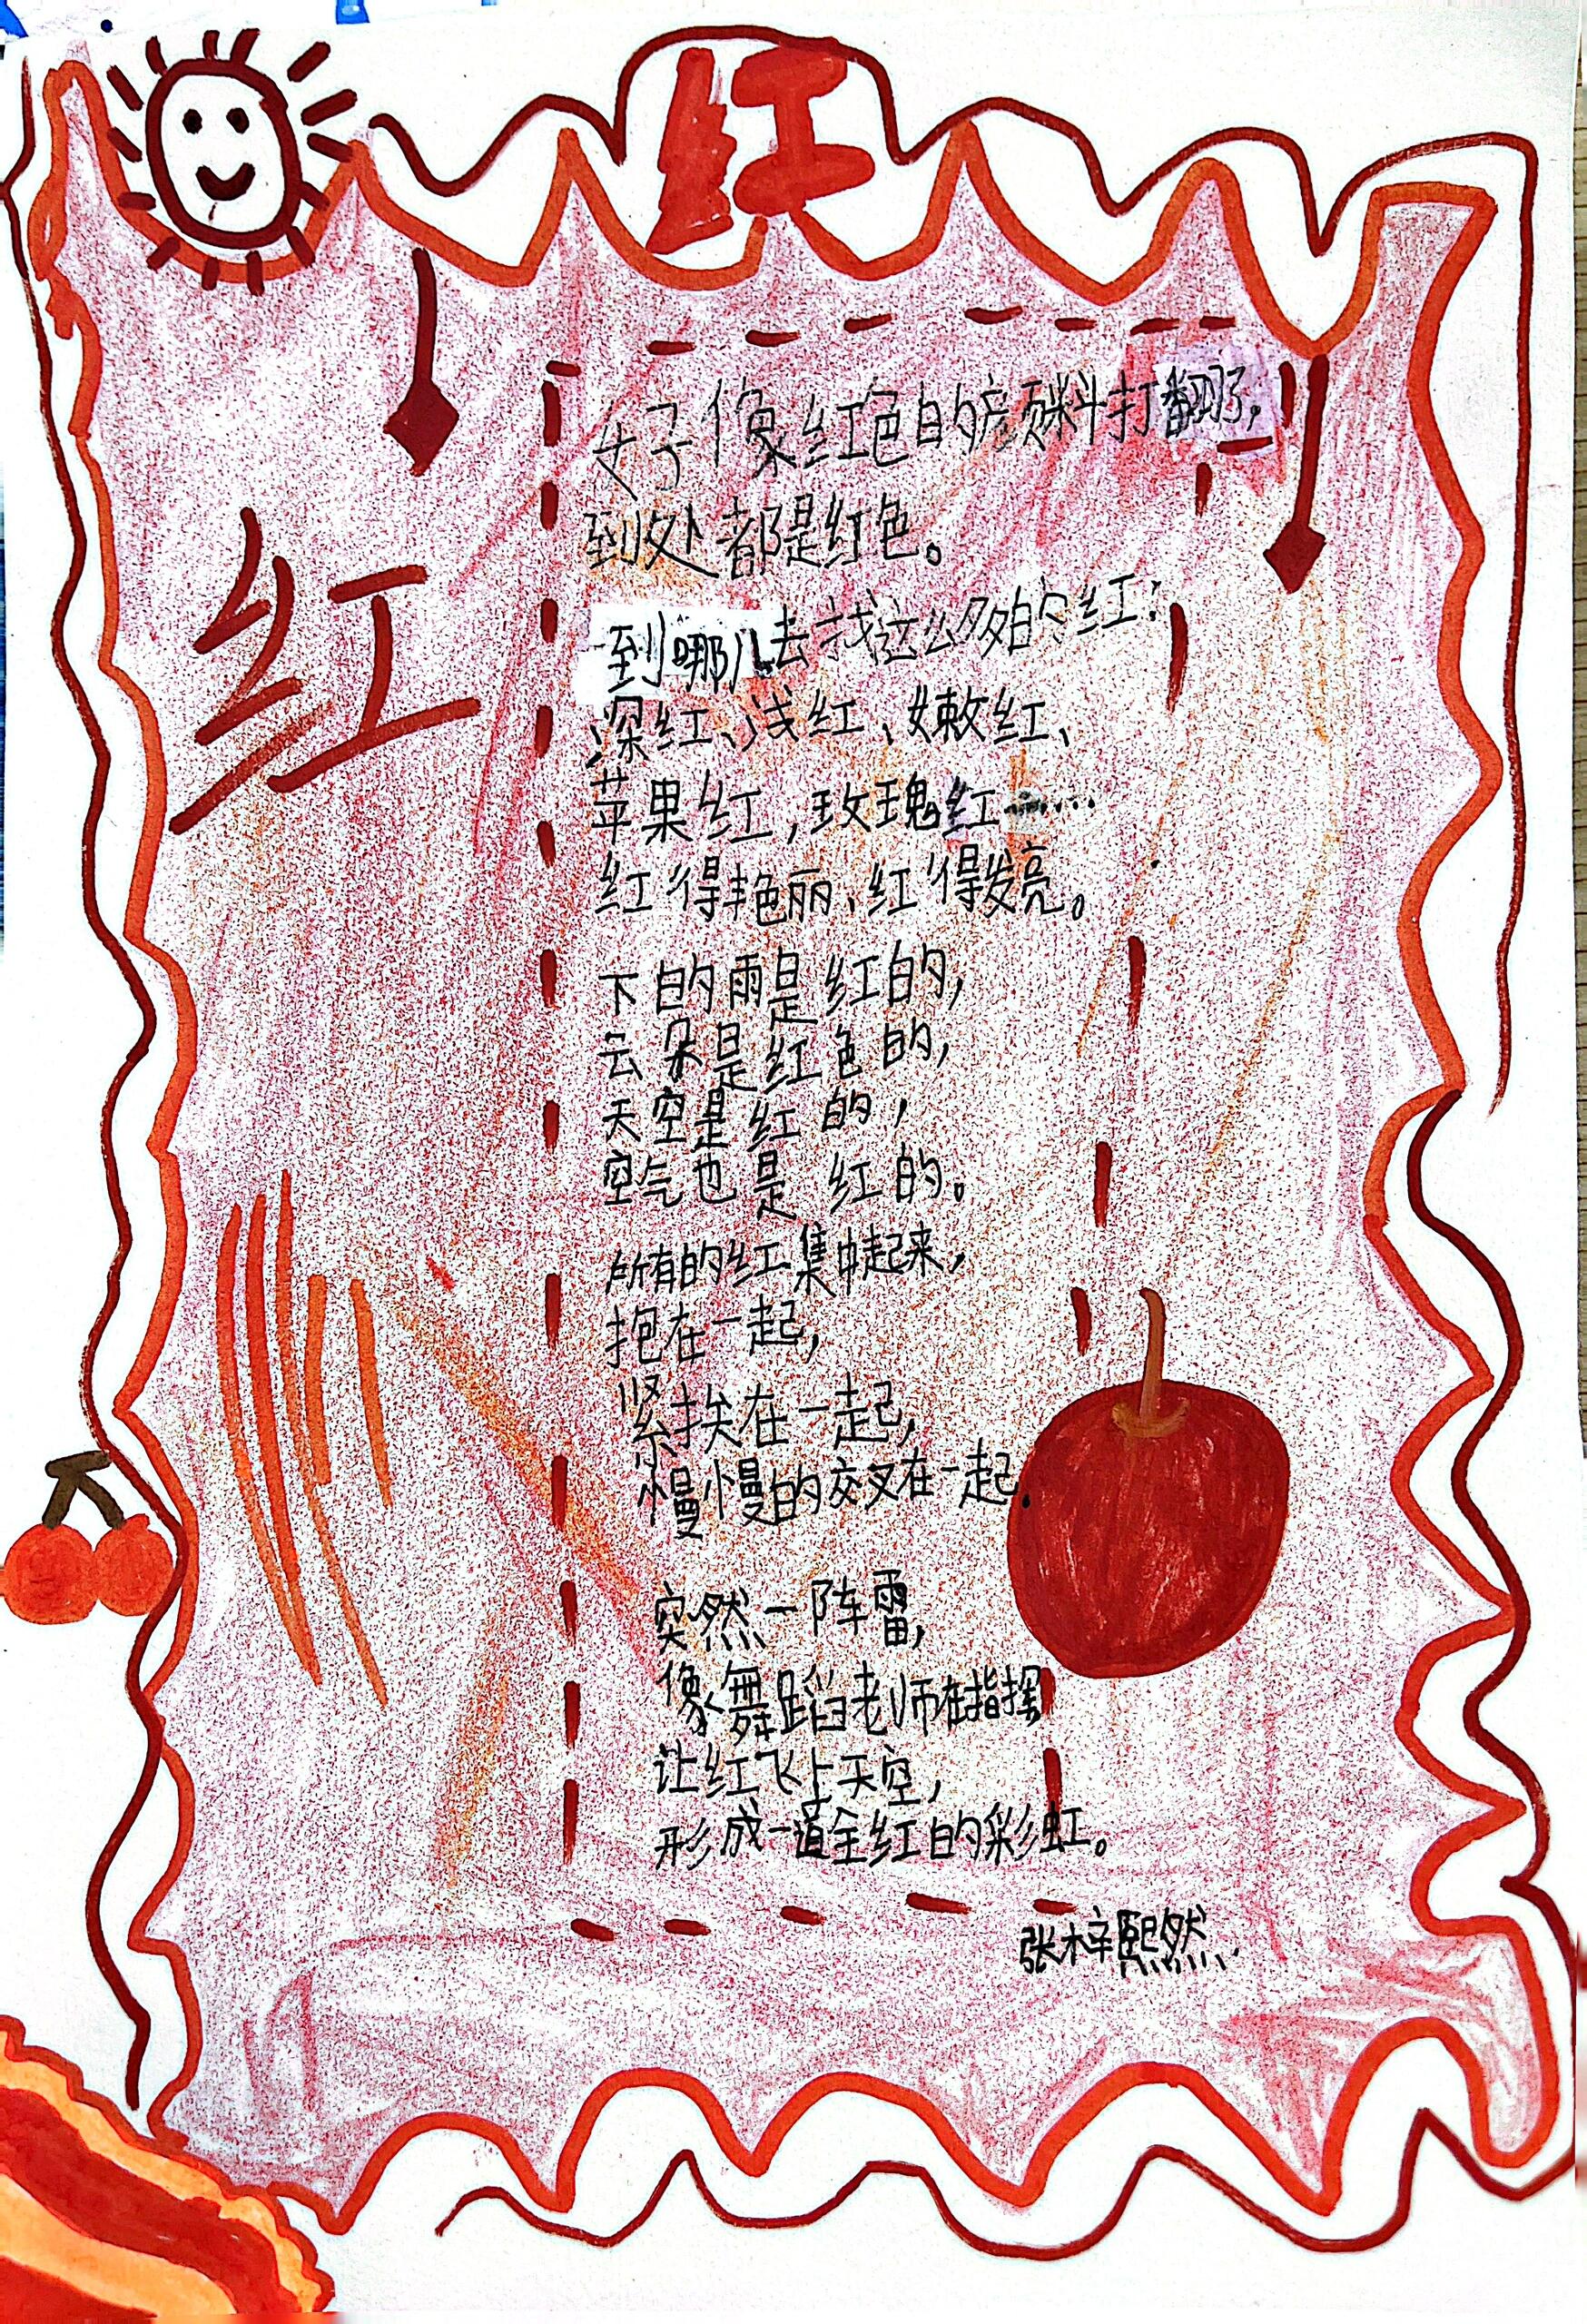 红
红
好像红色的颜料打翻了,
到处都是红色。
到哪儿去找这么多的红:
深红、浅红、嫩红、
苹果红,玫瑰红……
红得艳丽、红得发亮。
下的雨是红的,
云朵是红色的,
天空是红的,
空气也是红的。
所有的红集中起来,
抱在一起,
紧挨在一起,
慢慢的交叉在一起.
突然一阵雷,
像舞蹈老师在指挥
让红飞上天空,
形成一道全红的彩虹。
张梓熙然.